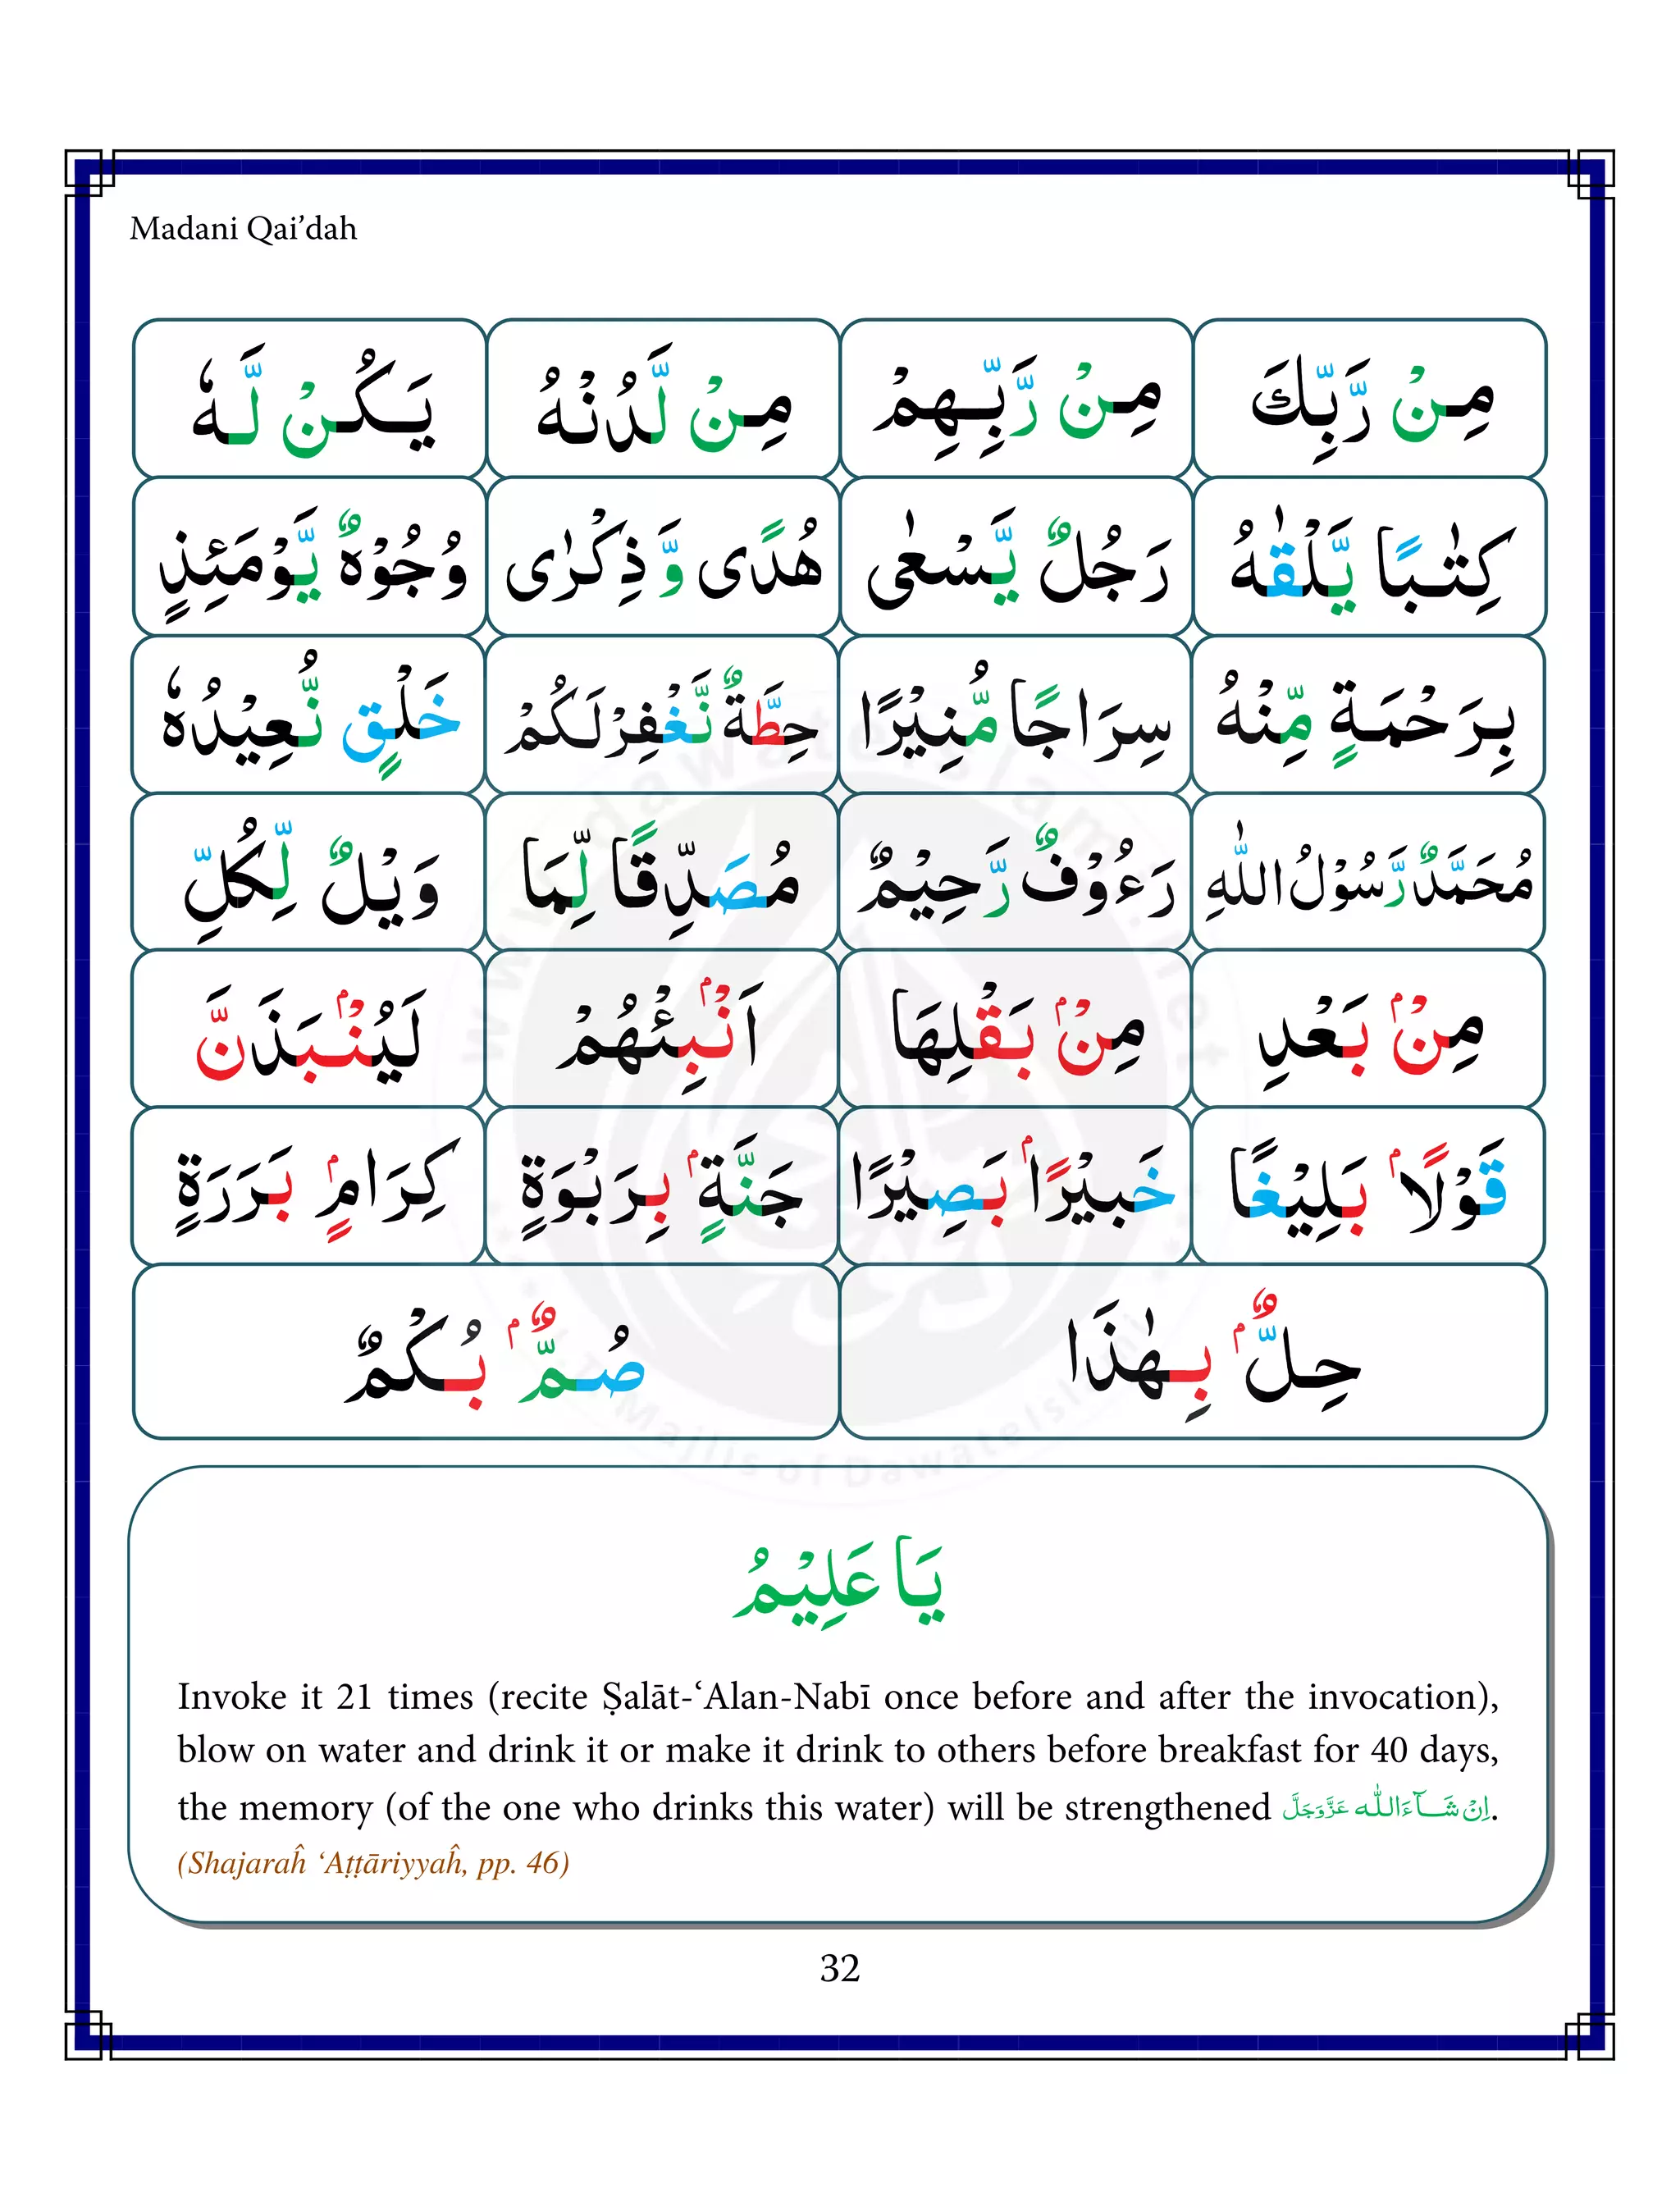 Madani Qai’dah
مِنْ رَّبِّكَ مِنْ رَّبِّهِمْ مِنْ لَّدُنْهُ يَكُنْ لَّهٗ
كِتٰبًا يَّلْقٰىهُ رَجُلٌ يَّسْعٰى هُدًى وَّذِكْرٰى وُجُوْهٌ يَّوْمَئِذٍ
بِرَحْمَةٍ مِّنْهُ سِرَاجًا مُّنِيْرًا حِطَّةٌ نَّغْفِرْلَكُمْ خَلْقٍ نُّعِيْدُهٗ
مُحَمَّدٌ رَّسُوْلُ اللّٰهِ رَءُوْفٌ رَّحِيْمٌ مُصَدِّقًا لِّمَا وَيْلٌ لِّكُلِّ
مِنْۢ بَعْدِ مِنْۢ بَقْلِهَا اَنْۢبِئْهُمْ لَيُنْۢبَذَنَّ
قَوْلًاۢ بَلِيْغًا خَبِيْرًاۢ بَصِيْرًا جَنَّةٍۭ بِرَبْوَةٍ كِرَامٍۭ بَرَرَةٍ
حِلٌّۢ بِهٰذَا صُمٌّۢ بُكْمٌ
يَا عَلِيْمُ
Invoke it 21 times (recite Ṣalāt-‘Alan-Nabī once before and after the invocation),
blow on water and drink it or make it drink to others before breakfast for 40 days,
the memory (of the one who drinks this water) will be strengthened اِنْ شَآءَ اللّٰه عَزَّوَجَلَّ.
(Shajaraĥ ‘Aṭṭāriyyaĥ, pp. 46)
32